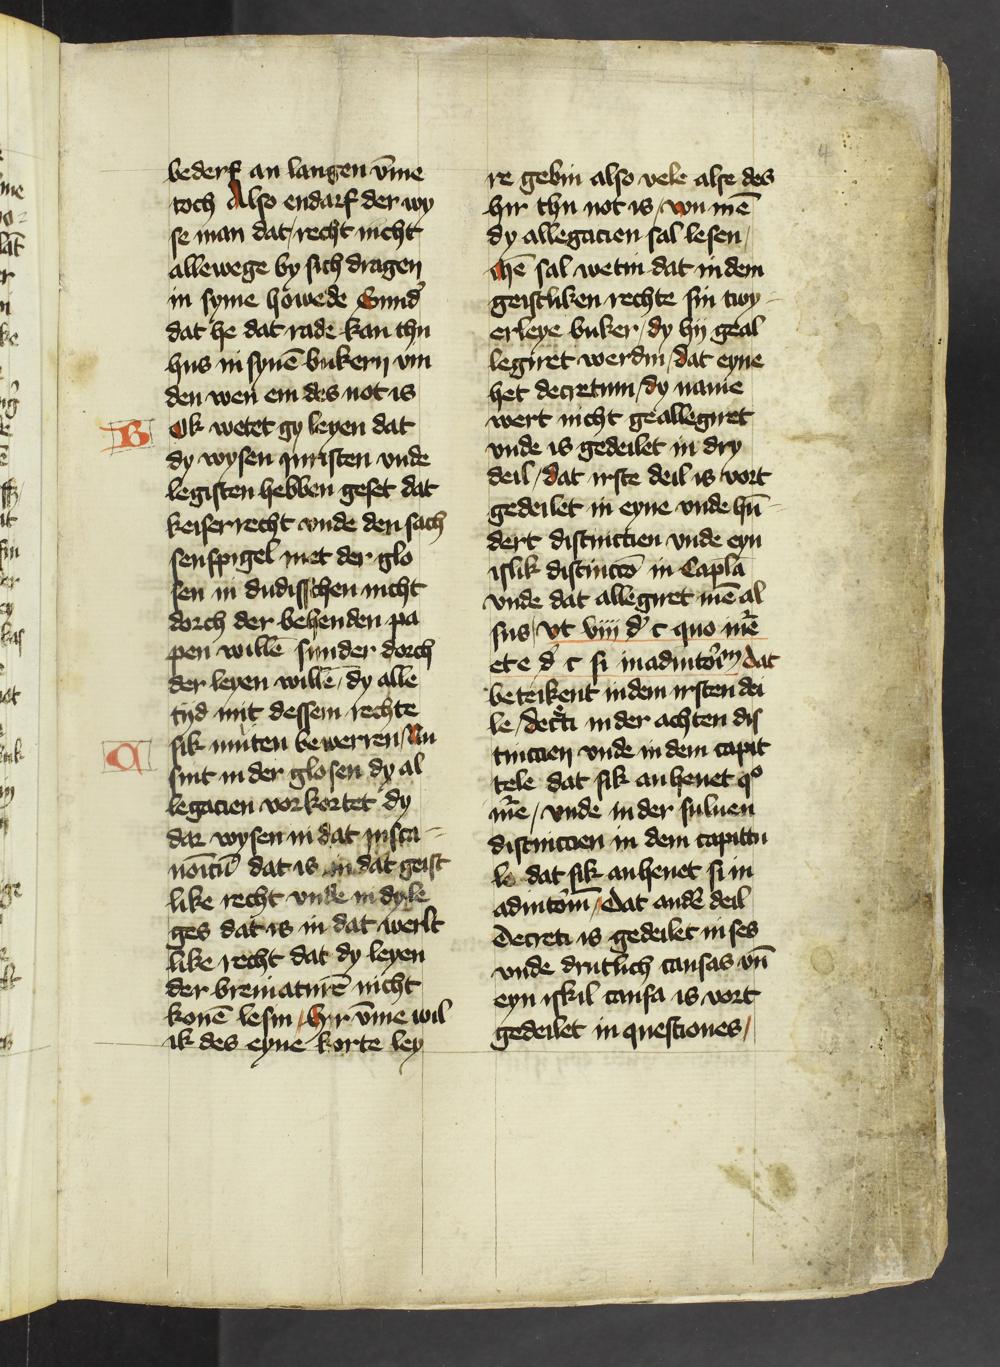 4
bederf an langen v̄me
toch Also endarf der wy
se man dat recht nicht
allewege by sich dragen
in syme höwede Sund᷑
dat he dat rade kan thu
hus in synē bukern vm
den wen em des not is
B
Ok wetet gy leyen dat
dy wysen juristen vnde
legisten hebben geset dat
keiserrecht vnde den sach
senspigel met der glo
sen in dudisschen nicht
dorch der behenden pa
pen willē sunder dorch
der leyen willē / dy alle
tijd mit dessem rechte
sik muten bewerren / Nu
C
sint in der glosen dy al
legacien vorkortet dy
dar wysen in dat jus ca=
noīcū dat is in dat geist
like recht vnde in dy le
ges dat is in dat werlt
like recht dat dy leyen
der breuiaturē nicht
konē lesin / hir v̄me wil
ik des eyne korte ley
re gebin also vele alse des
hir thu not is / wu mē
dy allegacien sal lesen /
Mē sal wetin dat in dem
geistliken rechte sin twy=
erleye buker / dy hij geal
legiret werdin / dat eyne
het decretum / dy name
wert nicht geallegiret
vnde is gedeilet in dry
deil / dat irste deil is vort
gedeilet in eyne vnde hū=
dert distinctien vnde eyn
islik distinctō in Capla
vnde dat allegiret mē al
sus / vt viii d᷑ c quo iur̄e
et e d᷑ c si in adiutoīm Dat
beteikent in dem irsten dei
le / decr̄ti in der achten dis
tinccien vnde in dem capit
tele dat sik anheuet qͦ
iur̄e / vnde in der suluen
distinccien in dem capittu
le dat sik anheuet si in
adiutoīm / Dat and᷑e deil
Decreti is gedeilet in ses
vnde druttich causas vn̄
eyn iskil causa is vort
gedeilet in questiones /